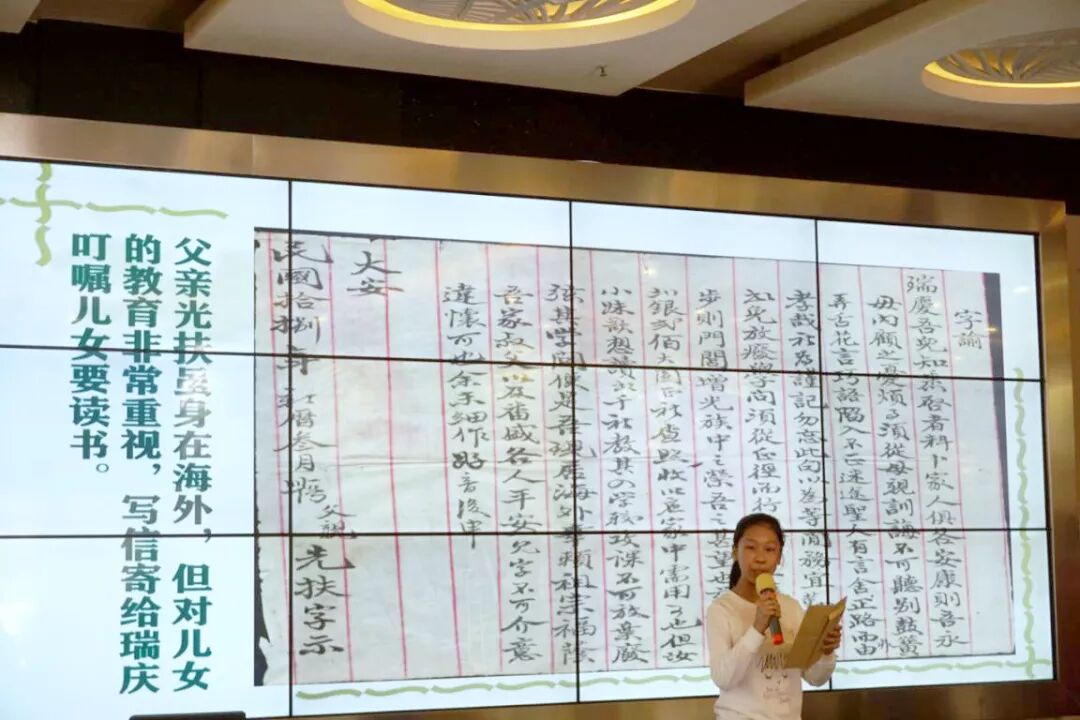 字諭
瑞慶吾兒知悉啓者料卜家人俱各安康則吾永
毋內顧之憂煩 須從母親訓誨不可聽別鼓簧
弄舌花言巧語陷入不正迷途聖人有言舍正路而由
孝哉 為謹記勿忘此句以為等閒務宜
如兒放廢學問須從正徑而行
步則門閭增光族中之榮吾之甚望也
銀弍佰大圓正 查照收以應家中需用可也但汝
小妹 想讀 千祈教其 攻課不可放棄廢
弛其學問係是吾現居海外專賴祖宗福蔭
吾家叔父以及番戚各人平安 字不可介意
違懷可也余不細作好音後申
大安
民國拾捌年 曆叁月 父親光扶字示
父亲光扶虽身在海外，但对儿女
的教育非常重视，写信寄给瑞庆
叮嘱儿女要读书。